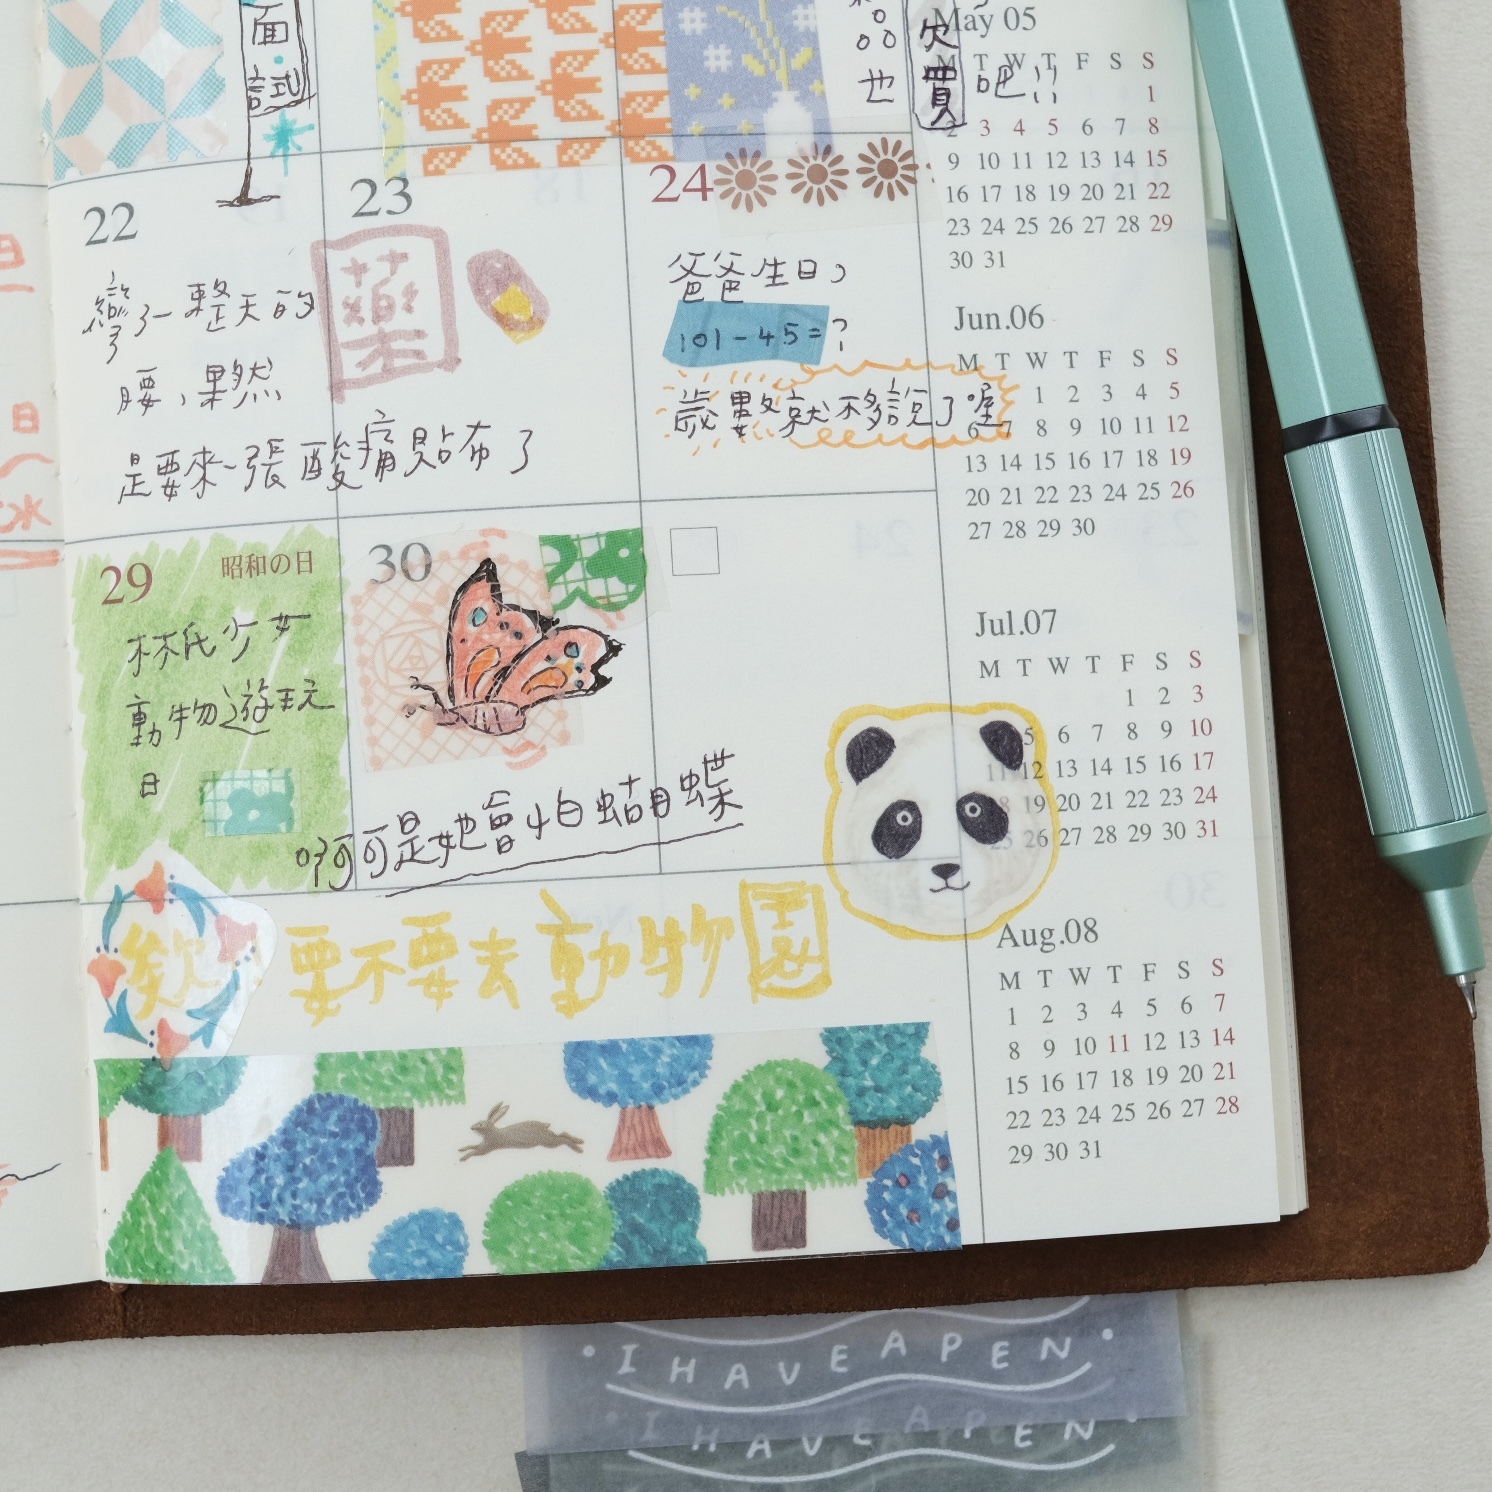 面
試
品
也
欠
買
吧!!
22
彎了一整天的
腰,果然
是要來一張酸痛貼布了
23
藥
24
爸爸生日,
101-45=?
歲數就不多說了喔
29
昭和の日
林氏少女
動物遊玩
日
30
啊可是她會怕蝴蝶
欸
要不要去動物園
May 05
M T W T F S S
1
2 3 4 5 6 7 8
9 10 11 12 13 14 15
16 17 18 19 20 21 22
23 24 25 26 27 28 29
30 31
Jun.06
M T W T F S S
1 2 3 4 5
6 7 8 9 10 11 12
13 14 15 16 17 18 19
20 21 22 23 24 25 26
27 28 29 30
Jul.07
M T W T F S S
1 2 3
5 6 7 8 9 10
11 12 13 14 15 16 17
18 19 20 21 22 23 24
25 26 27 28 29 30 31
Aug.08
M T W T F S S
1 2 3 4 5 6 7
8 9 10 11 12 13 14
15 16 17 18 19 20 21
22 23 24 25 26 27 28
29 30 31
I HAVE A PEN
I HAVE A PEN